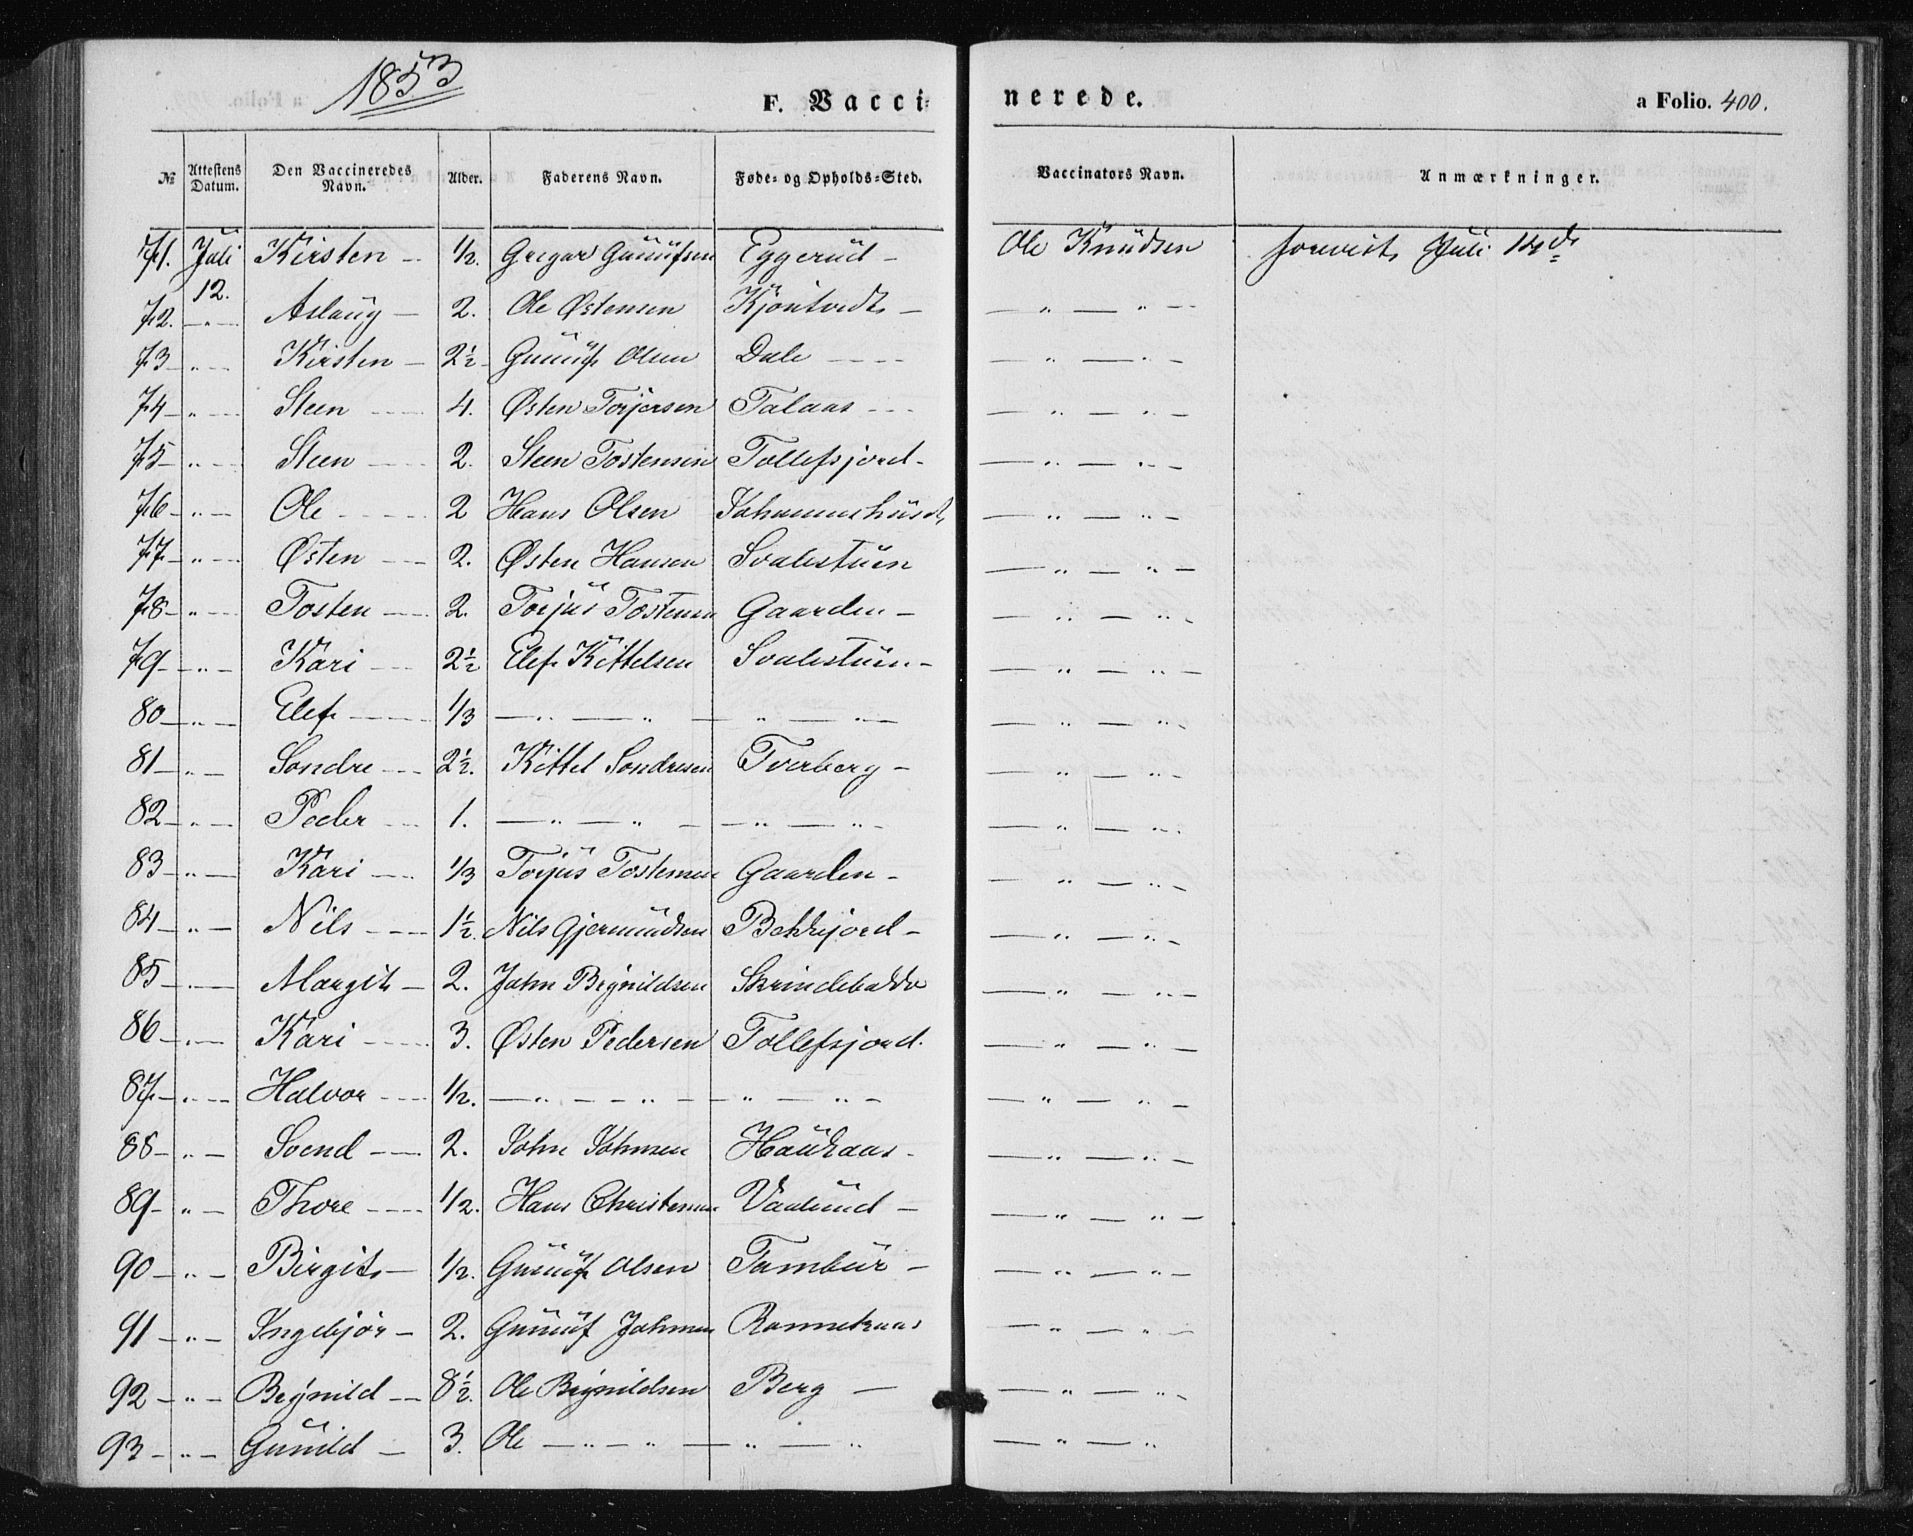 1853
F. Vaccinerede. a Folio. 400.
№ Attestens Datum. Den Vaccineredes Navn. Alder. Faderens Navn. Føde- og Opholds-Sted. Vaccinators Navn. Anmærkninger.
71. Juli 12. Kirsten 1/2. Gregar Gunufsen Eggerud Ole Knudsen forevist Juli 14de
72. " Aslaug 2. Ole Østensen " "
73 " Kirsten 2½ Gunuf Olsen Dale " "
74 " Steen 4. Østen Torjersen Talaas " "
75 " Steen 2. Steen Tostensen Tollefsjord " "
76 " Ole 2 Hans Olsen " "
77 " Østen 2. Østen Hansen Svalestuen " "
78 " Tosten 2. Torjus Tostensen Gaarden " "
79 " Kari 2½ Elef Kittelsen Svalestuen " "
80 " Elef 1/3 " " " " " "
81 " Sondre 2½. Kittel Sondresen Tverberg " "
82 " Peder 1. " " " " " "
83 " Kari 1/3 Torjus Tostensen Gaarden " "
84 " Nils 1½ Nils Gjermundsen Bekkhjord " "
85 " Margit 2. John Brynildsen Skrindebakke " "
86 " Kari 3. Østen Pedersen Tollefsjord. " "
87 " Halvor 1/2. " " " " " "
88 " Svend 2. John Johnsen Haukaas " "
89 " Thore 1/2. Hans Christensen Vaalund " "
90 " Birgit 1/2. Gunuf Olsen Tambur " "
91 " Ingebjør 2. Gunuf Johnsen " "
92 " Brynild 8½. Ole Brynildsen Berg " "
93 " Gunild 3. Ole " " " " " "